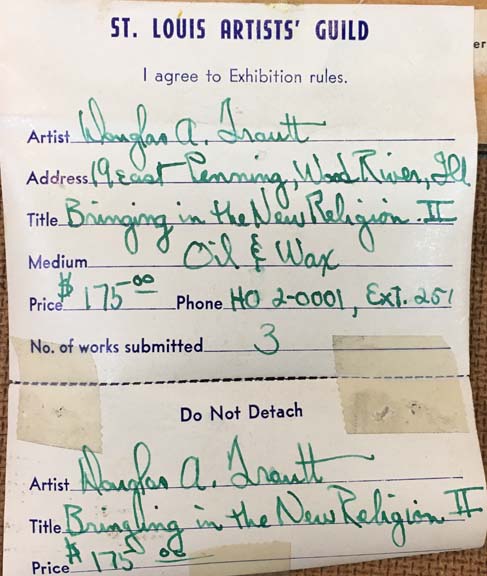 ST. LOUIS ARTISTS' GUILD
er
I agree to Exhibition rules.
Artist Douglas A. Trautt
Address 19 East Penning, Wood River, Ill
Title Bringing in the New Religion II
Medium Oil & Wax
Price $175 00 Phone HO 2-0001, Ext. 251
No. of works submitted 3
Do Not Detach
Artist Douglas A. Trautt
Title Bringing in the New Religion II
Price $175 00